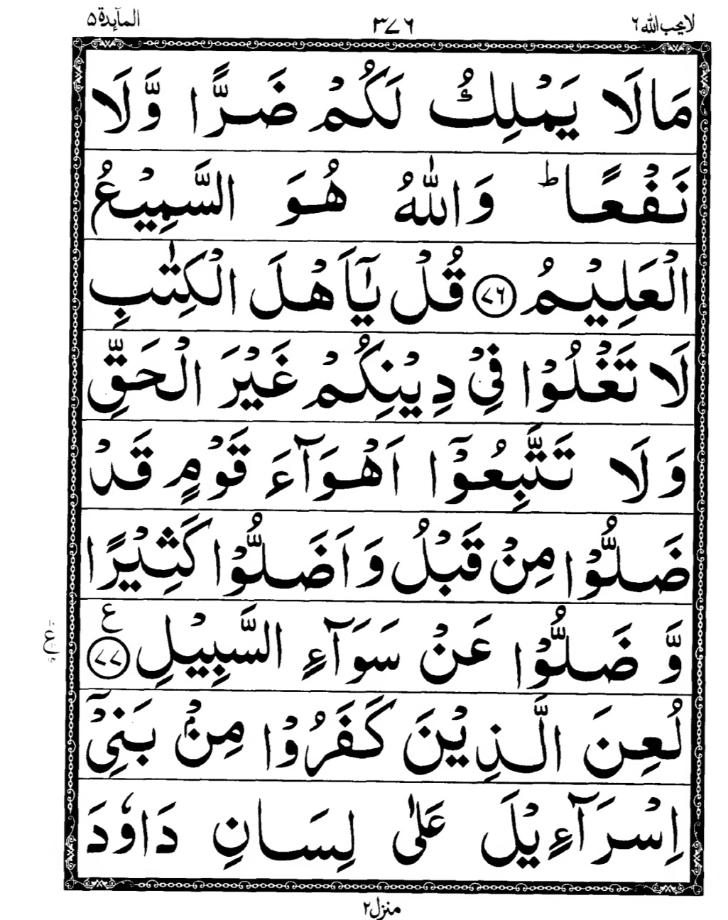 لا يحب الله ٦ ٣٧٦ المآئدة ٥
مَا لَا يَمْلِكُ لَكُمْ ضَرًّا وَّ لَا
نَفْعًا ؕ وَاللّٰهُ هُوَ السَّمِيْعُ
الْعَلِيْمُ ﴿٧٦﴾ قُلْ يٰۤاَهْلَ الْكِتٰبِ
لَا تَغْلُوْا فِيْ دِيْنِكُمْ غَيْرَ الْحَقِّ
وَلَا تَتَّبِعُوْۤا اَهْوَآءَ قَوْمٍ قَدْ
ضَلُّوْا مِنْ قَبْلُ وَاَضَلُّوْا كَثِيْرًا
وَّ ضَلُّوْا عَنْ سَوَآءِ السَّبِيْلِ ﴿٧٧﴾ ع
لُعِنَ الَّذِيْنَ كَفَرُوْا مِنْۢ بَنِيْۤ
اِسْرَآءِيْلَ عَلٰى لِسَانِ دَاوٗدَ
منزل ٢